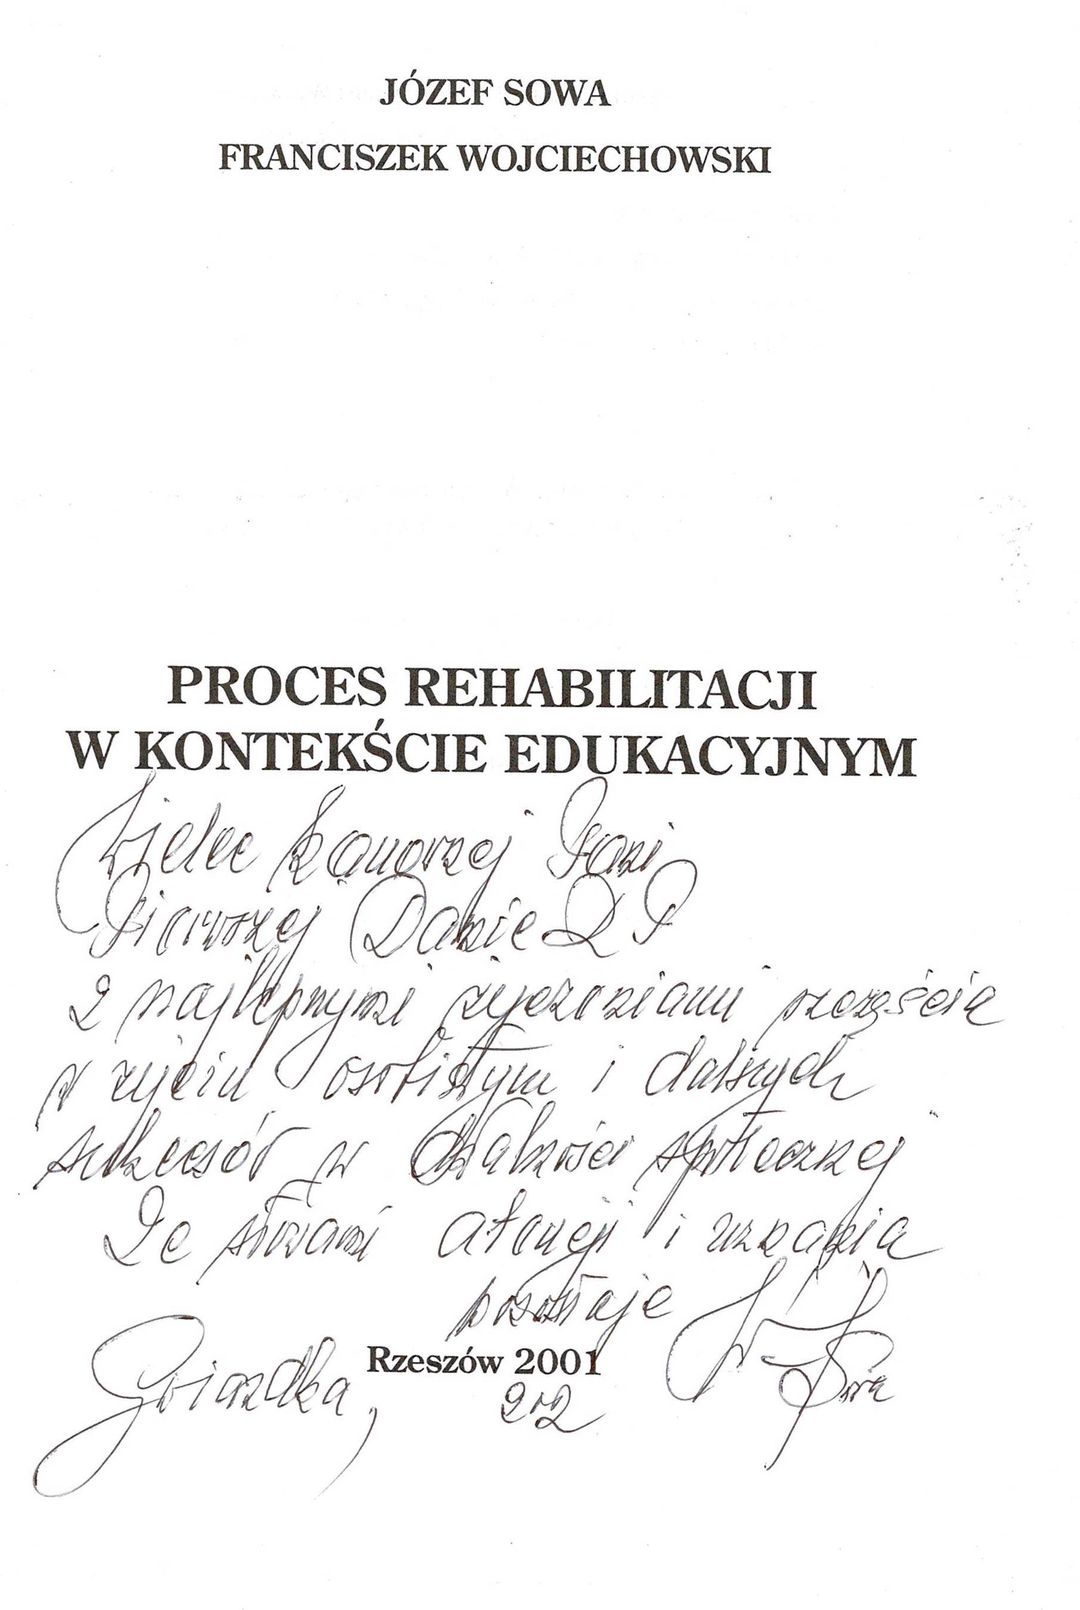 JÓZEF SOWA
FRANCISZEK WOJCIECHOWSKI
PROCES REHABILITACJI
W KONTEKŚCIE EDUKACYJNYM
Wielce Szanownej Pani
Pierwszej Damie
z najlepszymi życzeniami szczęścia
w życiu osobistym i dalszych
sukcesów w działalności społecznej
Ze słowami atencji i uznania
pozostaję
Rzeszów 2001
Gwiazdka,